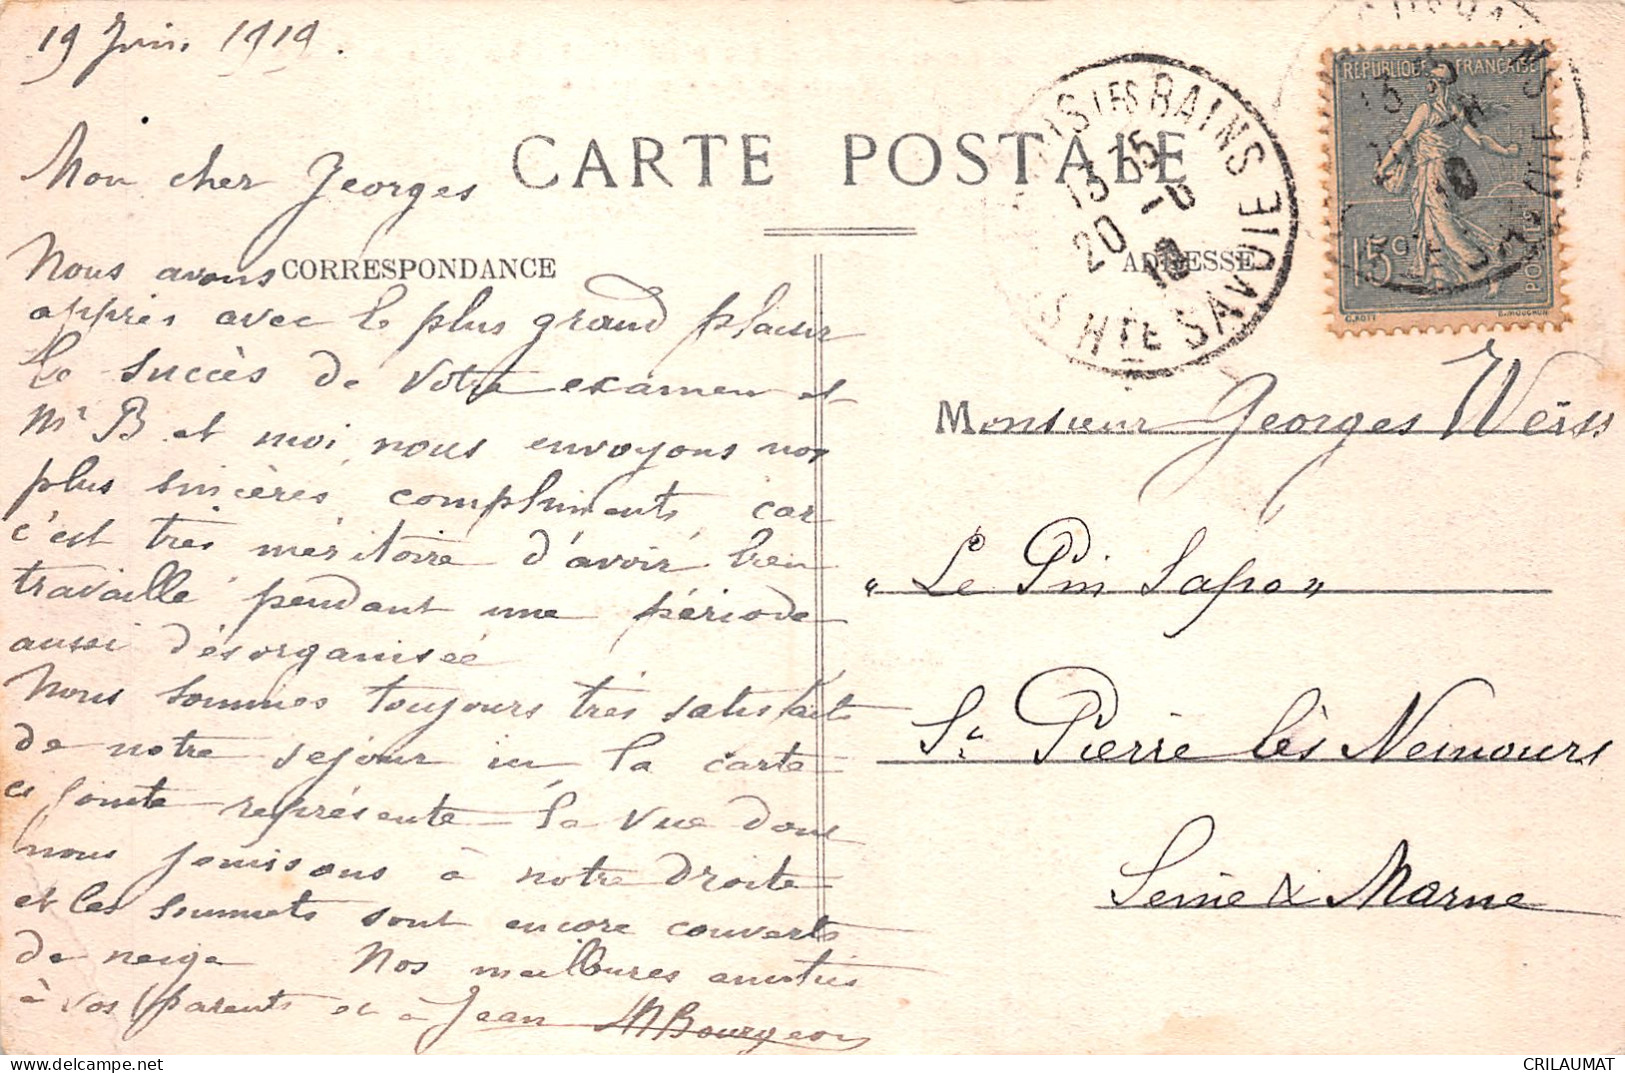 19 Juin 1919.
Mon cher Georges
CARTE POSTALE
CORRESPONDANCE
ADRESSE
Nous avons
appris avec le plus grand plaisir
le succès de votre examen et
Mr B. et moi nous envoyons nos
plus sincères compliments, car
c'est très méritoire d'avoir bien
travaillé pendant une période
aussi désorganisée
Nous sommes toujours très satisfaits
de notre séjour ici, la carte
ci jointe représente la vue dont
nous jouissons à notre droite
et les sommets sont encore couverts
de neige Nos meilleures amitiés
à vos parents et à Jean M Bourgeois
LES BAINS
13 35
20 -6
19
HTE SAVOIE
REPUBLIQUE FRANÇAISE
15c
POSTES
Monsieur Georges Weiss
"Le Pin Sapo"
St Pierre lès Nemours
Seine & Marne
CRILAUMAT